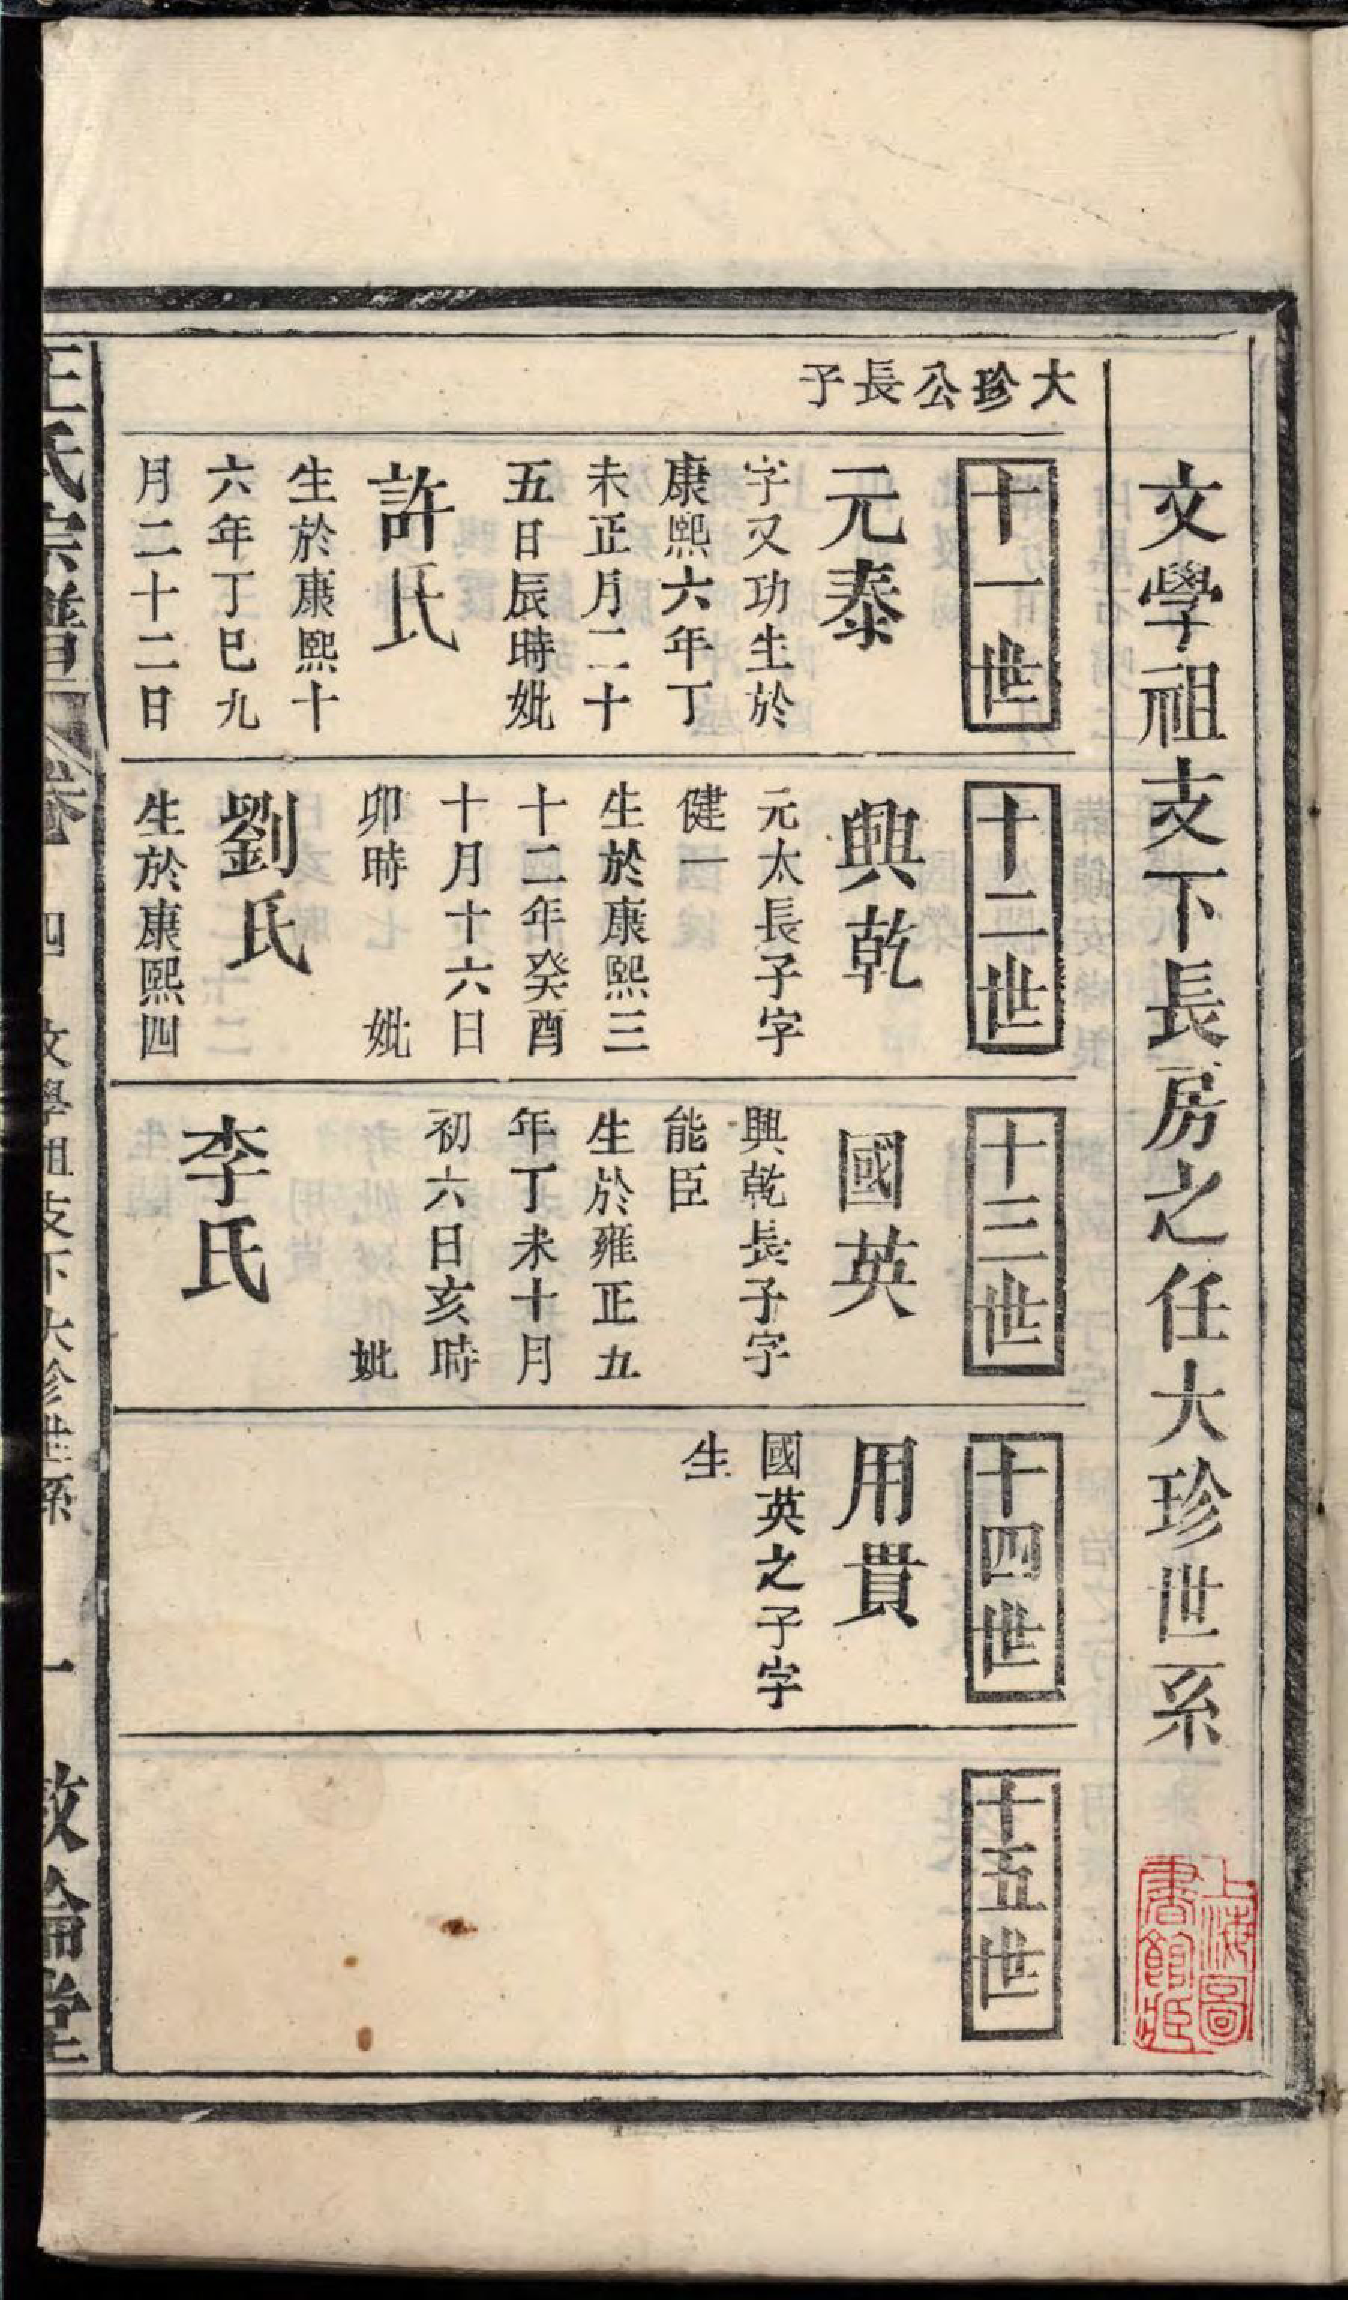 文學祖支下長房之任大珍世系
上海圖書館藏
大珍公長子
十一世
元泰
字又功生於
康熙六年丁
未正月二十
五日辰時妣
許氏
生於康熙十
六年丁巳九
月二十二日
十二世
興乾
元太長子字
健一
生於康熙三
十二年癸酉
十月十六日
卯時 妣
劉氏
生於康熙四
十三世
國英
興乾長子字
能臣
生於雍正五
年丁未十月
初六日亥時
妣
李氏
十四世
用貴
國英之子字
生
十五世
王氏宗譜
卷 四 文學祖支下大珍世系 一 敦倫堂